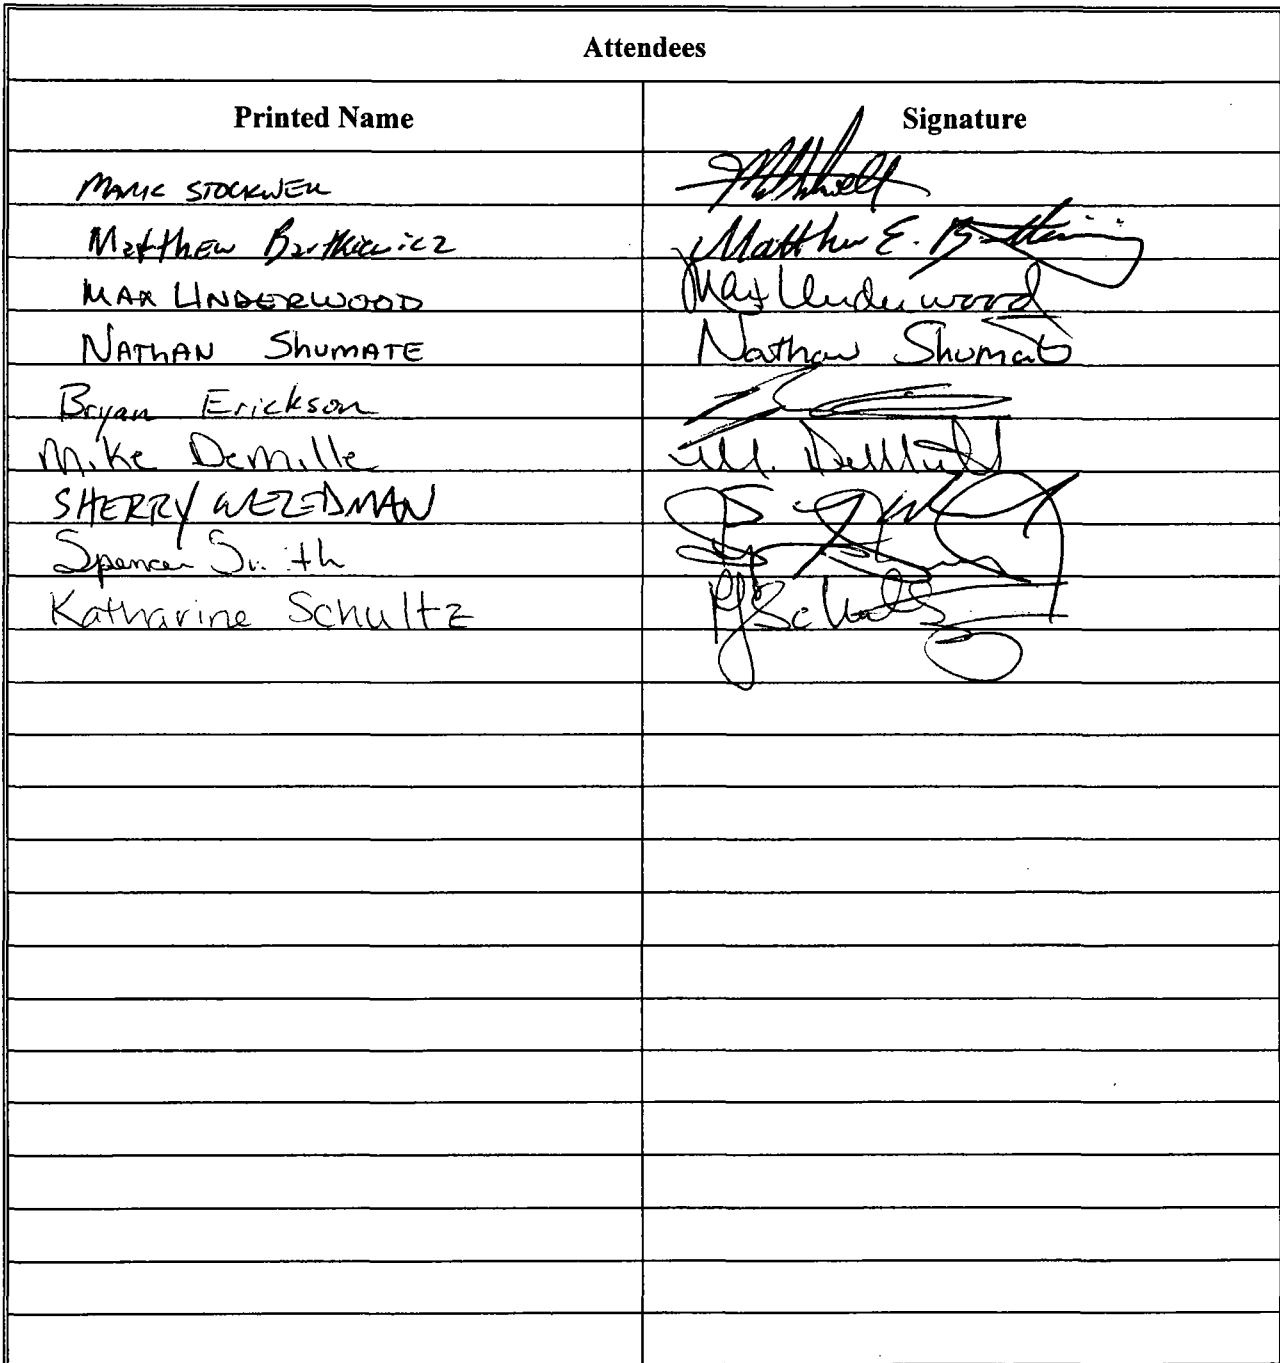 Attendees
Printed Name Signature
MARK STOCKWELL
Matthew Bartkiewicz Matthew E.
MAX UNDERWOOD Max Underwood
NATHAN SHUMATE Nathan Shumate
Bryan Erickson
Mike DeMille M. DeMille
SHERRY
Spencer Smith
Katharine Schultz KJSchultz